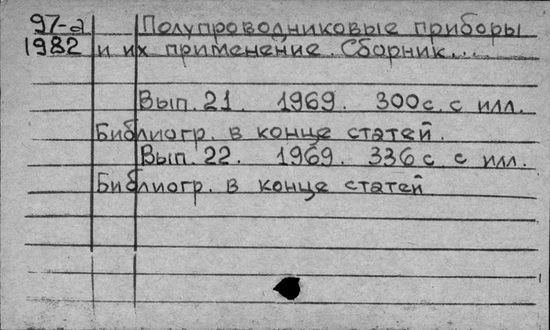 97-а Полупроводниковые приборы
1982 и их применение. Сборник...
Вып. 21. 1969. 300 с. с илл.
Библиогр. в конце статей.
Вып. 22. 1969. 336 с с илл.
Библиогр. в конце статей